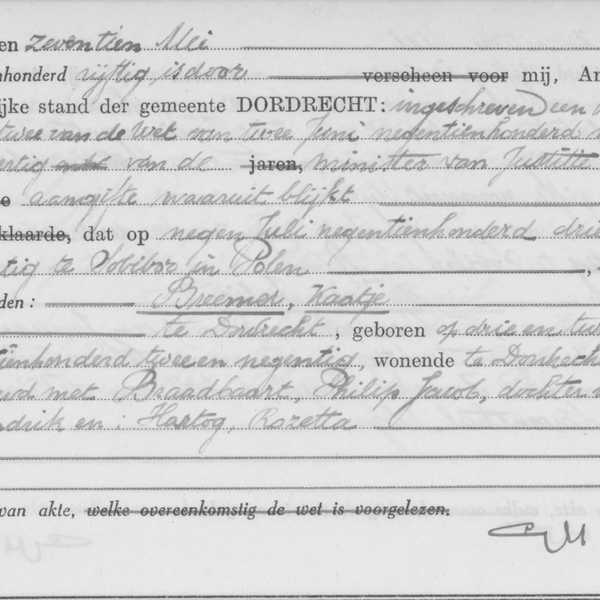 en zeventien Mei
nhonderd vijftig is door verscheen voor mij, Am
ijke stand der gemeente DORDRECHT: ingeschreven een
twee van de Wet van twee Juni negentienhonderd
ertig van de jaren, minister van Justitie
e aangifte waaruit blijkt
klaarde, dat op negen Juli negentienhonderd drie
tig te Sobibor in Polen
den: Breemer, Kaatje
te Dordrecht, geboren op drie en tw
iënhonderd twee en negentig, wonende te Dordrech
uwd met Braadbaart, Philip Jacob, dochter
ndrik en: Hartog, Rozetta
van akte, welke overeenkomstig de wet is voorgelezen.